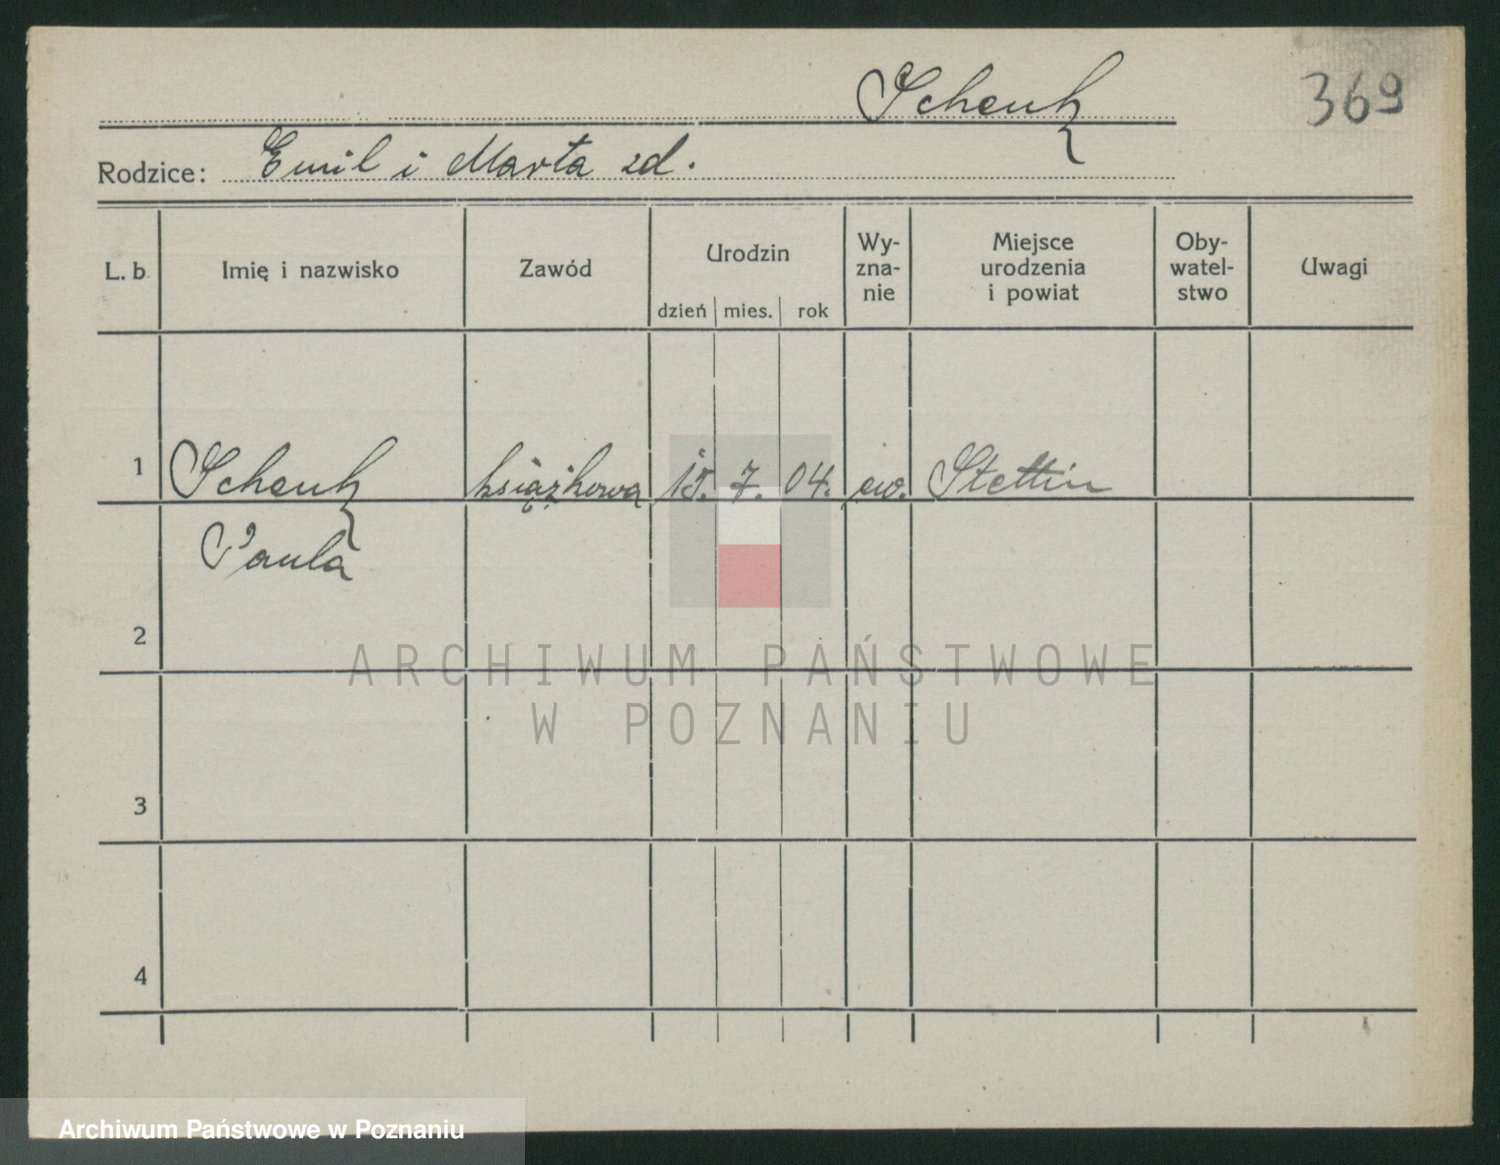 Schenk
369
Rodzice: Emil i Marta zd.
L. b. Imię i nazwisko Zawód Urodzin dzień mies. rok Wy- zna- nie Miejsce urodzenia i powiat Oby- watel- stwo Uwagi
1 Schenk książkowa 15. 7. 04. ew. Stettin
Paula
2
3
4
ARCHIWUM PAŃSTWOWE
W POZNANIU
Archiwum Państwowe w Poznaniu